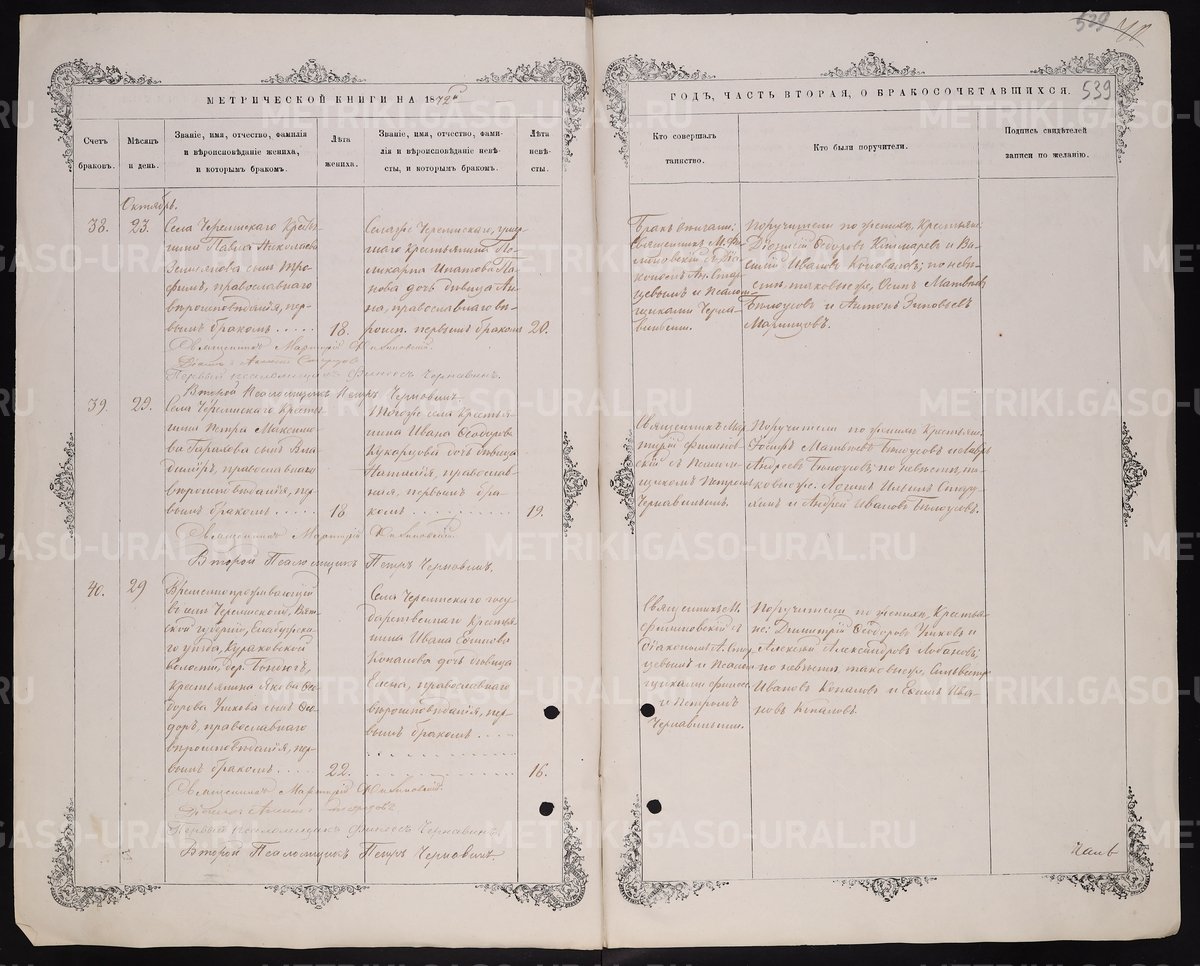 539
539
МЕТРИЧЕСКОЙ КНИГИ НА 1872й
ГОДЪ, ЧАСТЬ ВТОРАЯ, О БРАКОСОЧЕТАВШИХСЯ.
Счетъ
браковъ.
Мѣсяцъ
и день.
Званіе, имя, отчество, фамилія
и вѣроисповѣданіе жениха,
и которымъ бракомъ.
Лѣта
жениха.
Званіе, имя, отчество, фами-
лія и вѣроисповѣданіе невѣ-
сты, и которымъ бракомъ.
Лѣта
невѣ-
сты.
Кто совершалъ
таинство.
Кто были поручители.
Подпись свидѣтелей
записи по желанію.
Октябрь.
38.
23.
Села Черемисскаго Кресть-
янина Павла Николаева
сынъ Тро-
фимъ, православнаго
вѣроисповѣданія, пер-
вымъ бракомъ
18.
Черемисскаго, умер-
шаго крестьянина По-
ликарпа Ипатова По-
пова дочь дѣвица Ан-
на, православнаго вѣ-
роисп. первымъ бракомъ
20.
Бракъ вѣнчали:
Священникъ М. Фи-
липовскій съ Діа-
кономъ Ал. Стар-
цевымъ и Псалом-
щиками Черна-
виными.
Поручители по женихѣ, Крестьяне
Діонисій Ѳеодоровъ и Ва-
силій Ивановъ Коноваловъ; по невѣ-
стѣ, таковые же, Осипъ Матвѣевъ
Бѣлоусовъ и Антонъ Зиновьевъ
Священникъ Мартирій Филиповскій.
Первый псаломщикъ Финеесъ Чернавинъ.
Второй Псаломщикъ Петръ Чернавинъ.
39.
29.
Села Черемисскаго Кресть-
янина Петра Максимо-
ва сынъ Вла-
диміръ, православнаго
вѣроисповѣданія, пер-
вымъ бракомъ
18
Тогоже села Кресть-
янина Ивана Ѳеодорова
Кукарцова дочь дѣвица
Наталія, православ-
ная, первымъ бра-
комъ
19.
Священникъ Мар-
тирій Филипов-
скій съ Псалом-
щикомъ Петромъ
Чернавинымъ.
Поручители по женихѣ Крестьяне:
Матвѣевъ Бѣлоусовъ
Андреевъ Бѣлоусовъ; по невѣстѣ, та-
ковые же. Логинъ Ильинъ
и Андрей Ивановъ Бѣлоусовъ.
Священникъ Мартирій Филиповскій.
Второй Псаломщикъ Петръ Чернавинъ.
40.
29
Временнопроживающій
въ селѣ Черемисскомъ, Вят-
ской губерніи, Елабужска-
го уѣзда, Кураковской
волости, дер. Бондюгъ,
Крестьянина Якова Ѳео-
дорова Чикова сынъ Ѳео-
доръ, православнаго
вѣроисповѣданія, пер-
вымъ бракомъ
22.
Села Черемисскаго госу-
дарственнаго Крестья-
нина Ивана
Копалова дочь дѣвица
Елена, православнаго
вѣроисповѣданія, пер-
вымъ бракомъ
16.
Священникъ М.
Филиповскій съ
Діакономъ А. Стар-
цевымъ и Псалом-
щиками Финеес.
и Петромъ
Чернавиными.
Поручители по женихѣ, Крестья-
не: Димитрій Ѳеодоровъ Чиковъ и
Алексѣй Александровъ Лобановъ;
по невѣстѣ таковые же, Сильвестръ
Ивановъ Копаловъ и Ива-
новъ Копаловъ.
Священникъ Мартирій Филиповскій.
Первый псаломщикъ Финеесъ Чернавинъ.
Второй Псаломщикъ Петръ Чернавинъ
METRIKI.GASO-URAL.RU